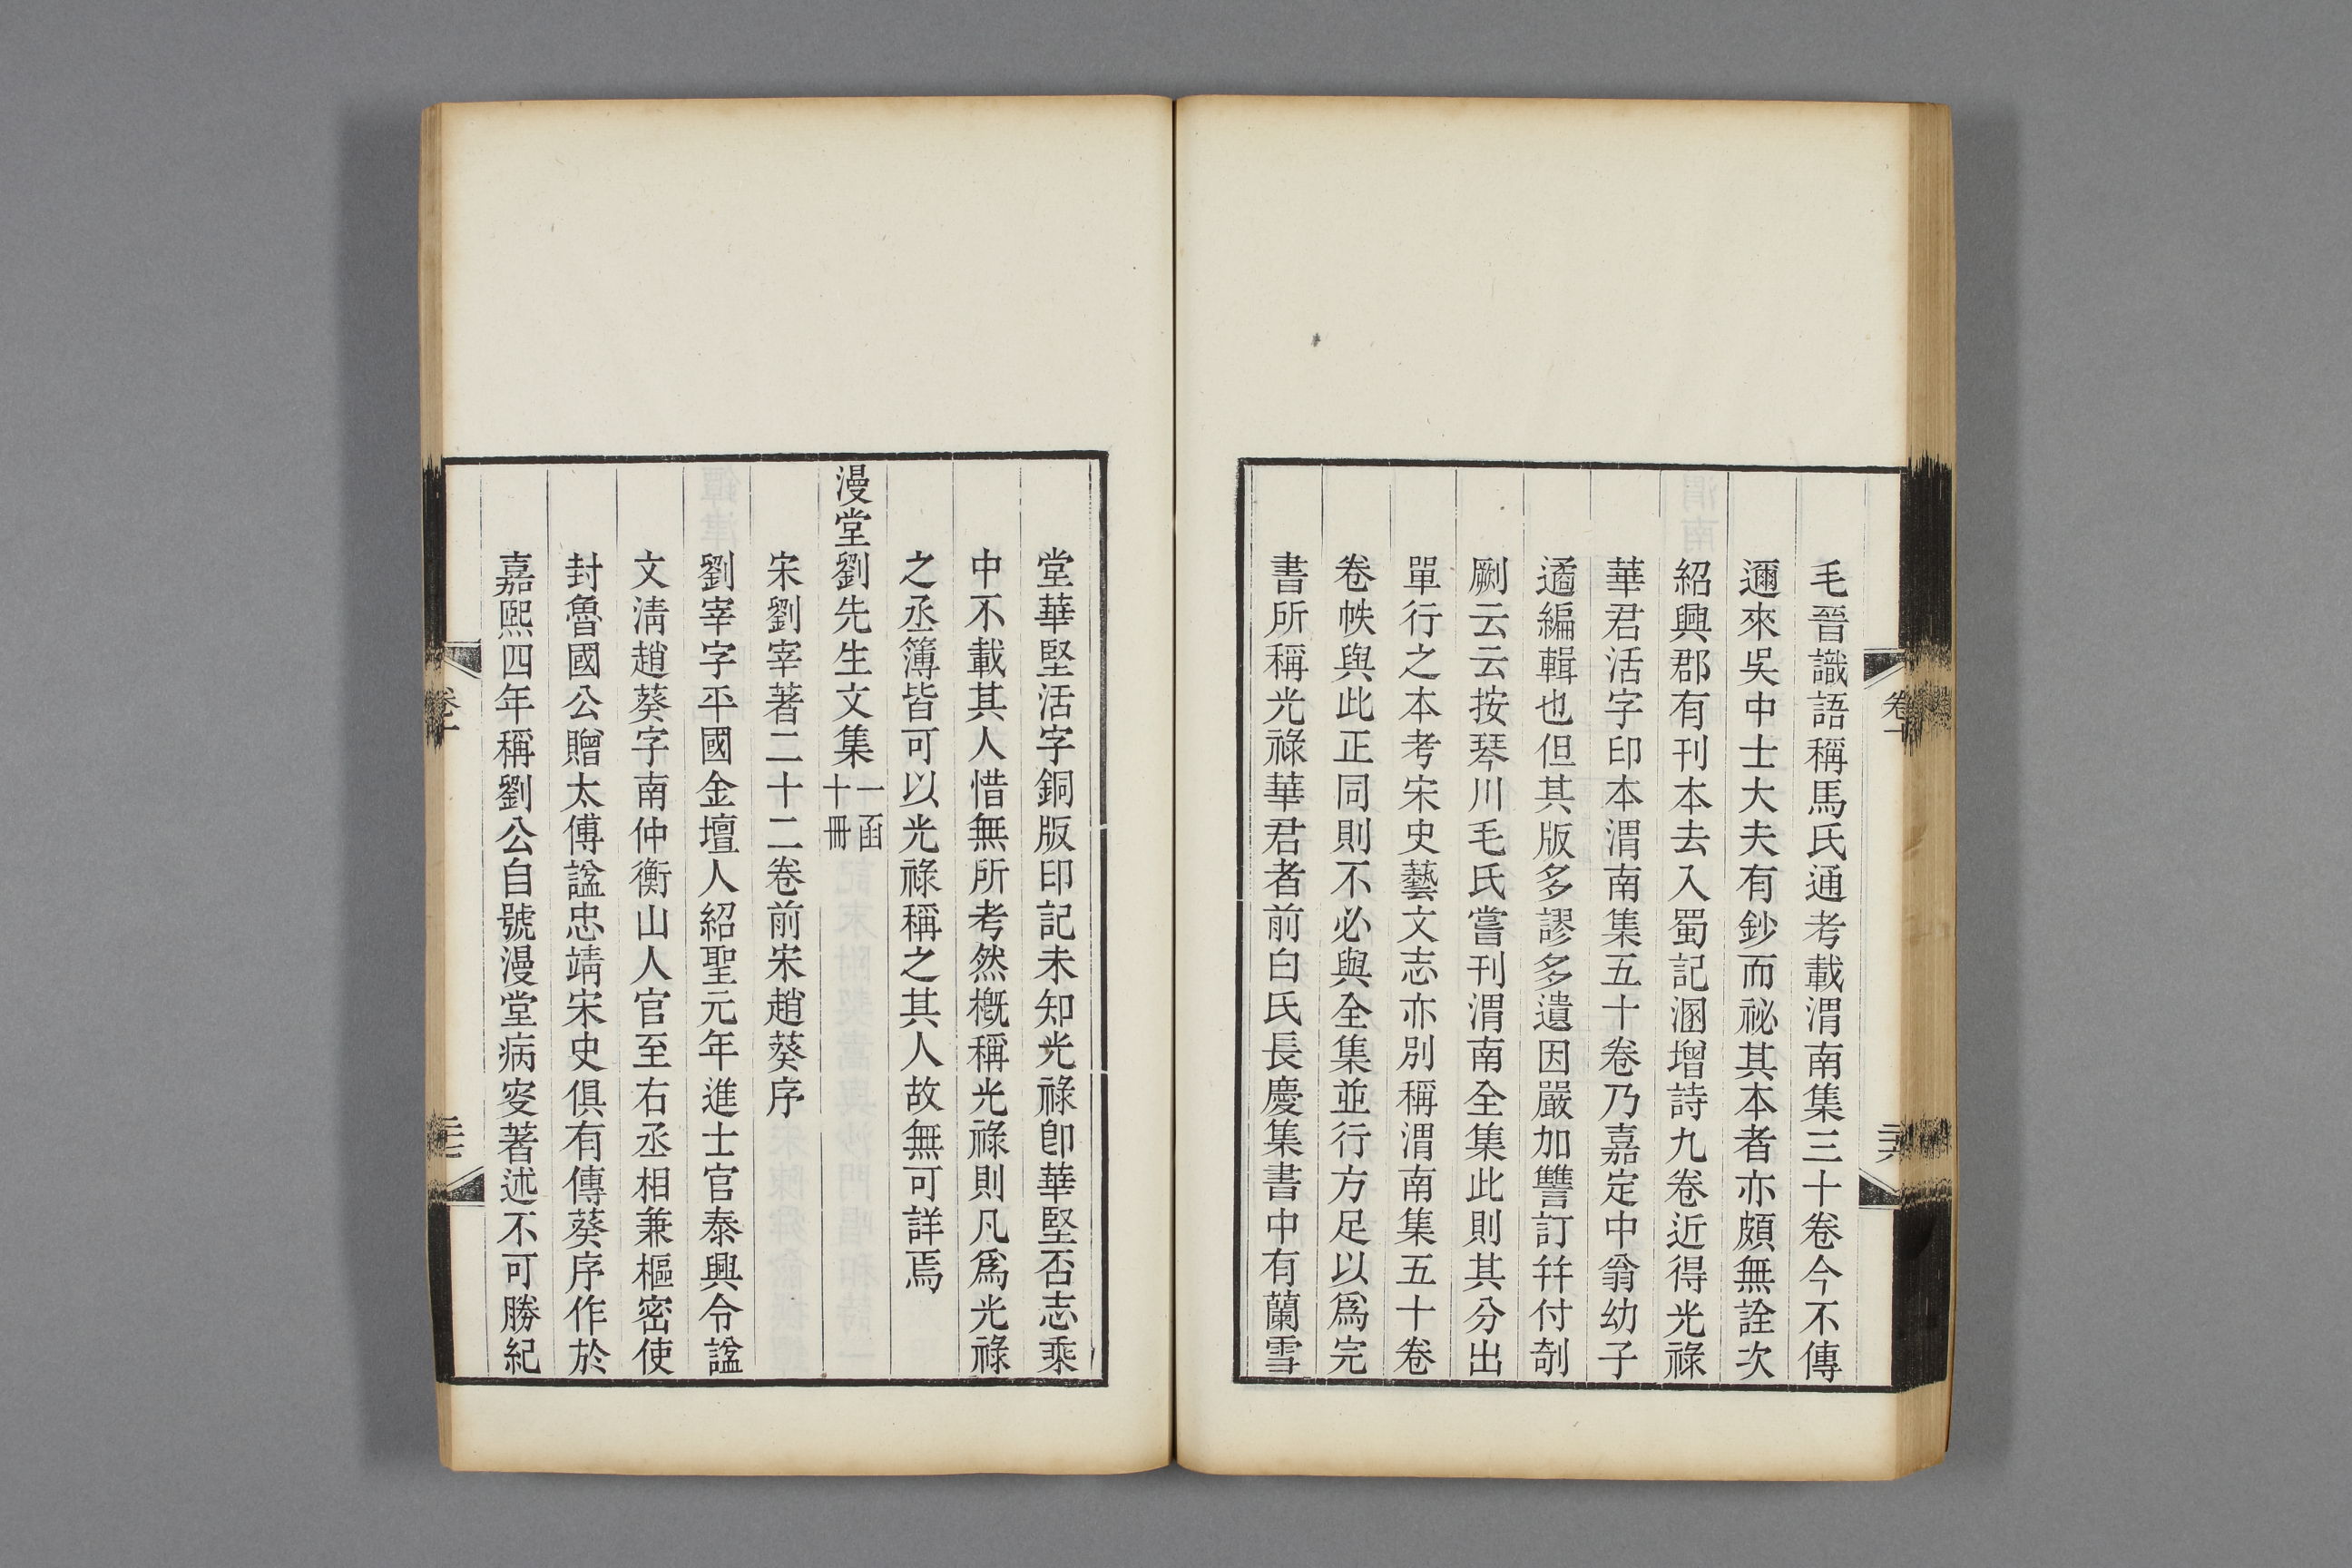 毛晉識語稱馬氏通考載渭南集三十卷今不傳
邇來吳中士大夫有鈔而祕其本者亦頗無詮次
紹興郡有刊本去入蜀記溷增詩九卷近得光祿
華君活字印本渭南集五十卷乃嘉定中翁幼子
遹編輯也但其版多謬多遺因嚴加讐訂幷付剞
劂云云按琴川毛氏嘗刊渭南全集此則其分出
單行之本考宋史藝文志亦別稱渭南集五十卷
卷帙與此正同則不必與全集並行方足以爲完
書所稱光祿華君者前白氏長慶集書中有蘭雪
堂華堅活字銅版印記未知光祿卽華堅否志乘
中不載其人惜無所考然槪稱光祿則凡爲光祿
之丞簿皆可以光祿稱之其人故無可詳焉
漫堂劉先生文集一函十冊
宋劉宰著二十二卷前宋趙葵序
劉宰字平國金壇人紹聖元年進士官泰興令諡
文淸趙葵字南仲衡山人官至右丞相兼樞密使
封魯國公贈太傅諡忠靖宋史俱有傳葵序作於
嘉熙四年稱劉公自號漫堂病叟著述不可勝紀